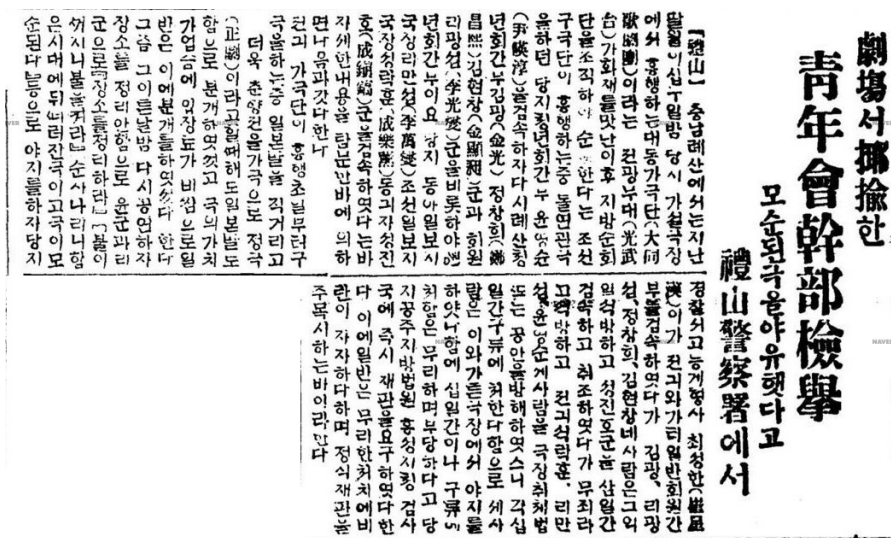 劇場서揶揄한
靑年會幹部檢擧
모순된극을야유햇다고
禮山警察署에서
【禮山】 충남례산에서는지난
달일이십구일밤 당시 가설극장
에서 흥행하는대동가극단(大同
歌劇團)이라는 전광무대(光武
台)가화재를맛난이후 지방순회
단을조직하야 순회한다는 조선
구극단이 흥행하는중 돌연관극
을하던 당지청년회간부 윤영순
(尹暎淳)을검속하자다시례산청
년회간부김광(金光) 정창희(鄭
昌熙)김현창(金顯昶)군과 회원
리광섭(李光燮)군을비롯하야
년회간부이요 당지 동아일보시
국장리만섭(李萬燮)조선일보지
국장성락훈(成樂熏)동긔자성진
호(成鎭鎬)군을검속하엿다는바
자세한내용을 탐문한바에 의하
면다음과갓다한다
전긔 가극단이 흥행초일부터구
극을하는중 일본말을 직거리고
더욱 춘향전을가극으로 정극
(正劇)이라고할때에도일본말도
함으로 분개하엿것고 극의가치
가업슴에 입장료가 비쌈으로일
반은 이에분개를하엿섯다 한다
그즘 그이튼날밤 다시공연하자
장소를 정리안함으로 윤군과리
군으로『장소를정리하라』『불이
꺼지니불을켜라』순사나리니함
은시대에뒤떠러진극이고극이모
순된다』등으로 야지를하자당지
경찰서고등계형사 최청한(崔
漢)이가 전긔와가티일반회원간
부를검속하엿다가 김광, 리광
섭, 정창희, 김현창네사람은그익
일석방하고 성진호군을 삼일간
검속하고 취조하엿다가 무죄라
고석방하고 전긔성락훈, 리만
섭, 윤영순세사람을 극장취체법
또는 공안을방해하엿스니 각십
일간구류에 처한다함으로 세사
람은 이와가튼극장에서 야지를
하얏다함에 십일간이나 구류에
처함은 무리하며부당하다고 당
지공주지방법원 홍성지청 검사
국에 즉시 재판을요구하엿다한
다 이에일반은 무리한처치에비
란이 자자하다하며 정식재판을
주목시하는바이라한다